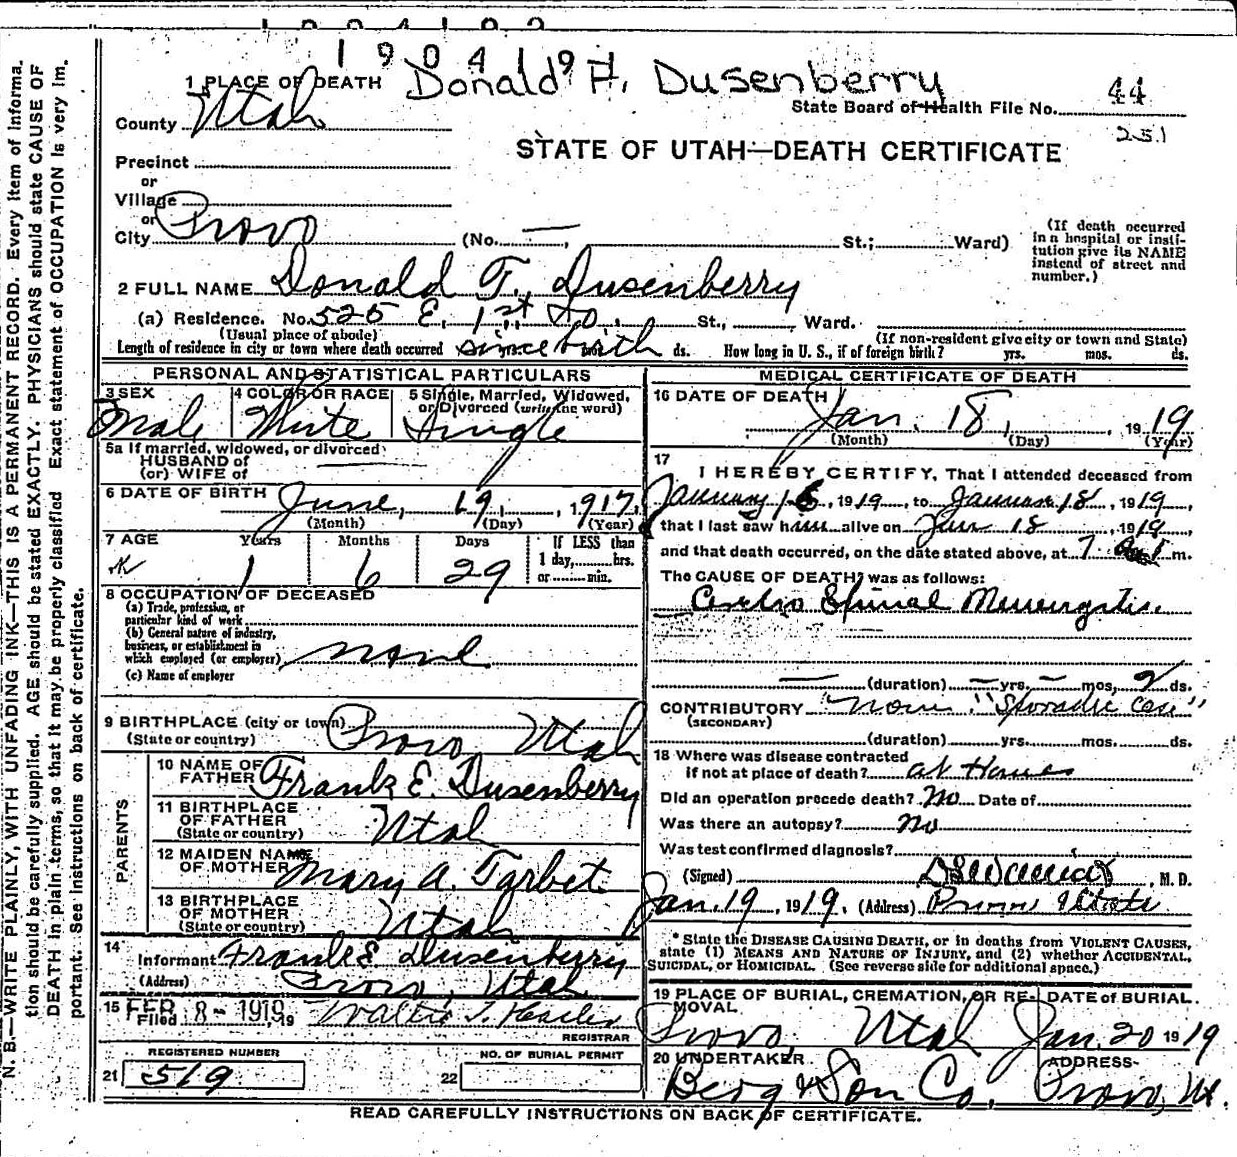 1904192
Donald H. Dusenberry
1 PLACE OF DEATH
State Board of Health File No. 44
251
County Utah
STATE OF UTAH—DEATH CERTIFICATE
Precinct
or
Village
or
City Provo (No. — , St.; Ward)
(If death occurred in a hospital or institution give its NAME instead of street and number.)
2 FULL NAME Donald F. Dusenberry
(a) Residence. No. 525 E. 1st So. St., Ward.
(Usual place of abode) (If non-resident give city or town and State)
Length of residence in city or town where death occurred since birth ds. How long in U. S., if of foreign birth? yrs. mos. ds.
PERSONAL AND STATISTICAL PARTICULARS
3 SEX Male
4 COLOR OR RACE White
5 Single, Married, Widowed, or Divorced (write the word) Single
5a If married, widowed, or divorced
HUSBAND of
(or) WIFE of
6 DATE OF BIRTH June, 19, 1917
(Month) (Day) (Year)
7 AGE Years Months Days If LESS than
1 6 29 1 day, hrs.
or min.
8 OCCUPATION OF DECEASED
(a) Trade, profession, or particular kind of work
(b) General nature of industry, business, or establishment in which employed (or employer) none
(c) Name of employer
9 BIRTHPLACE (city or town) Provo, Utah
(State or country)
PARENTS
10 NAME OF FATHER Frank E. Dusenberry
11 BIRTHPLACE OF FATHER Utah
(State or country)
12 MAIDEN NAME OF MOTHER Mary A. Tarbet
13 BIRTHPLACE OF MOTHER Utah
(State or country)
14 Informant Frank E Dusenberry
(Address) Provo, Utah
15 Filed FEB 8 - 1919, 19 Walter T. Hasler
REGISTRAR
REGISTERED NUMBER
21 519
NO. OF BURIAL PERMIT
22
MEDICAL CERTIFICATE OF DEATH
16 DATE OF DEATH Jan. 18, 1919
(Month) (Day) (Year)
17 I HEREBY CERTIFY, That I attended deceased from
January 16, 1919, to January 18, 1919,
that I last saw him alive on Jan 18, 1919,
and that death occurred, on the date stated above, at 7 m.
The CAUSE OF DEATH* was as follows:
Cerebro Spinal Meningitis.
— (duration) — yrs. — mos. 2 ds.
CONTRIBUTORY none. "Sporadic case"
(SECONDARY)
(duration) yrs. mos. ds.
18 Where was disease contracted
if not at place of death? at Home
Did an operation precede death? No Date of
Was there an autopsy? no
Was test confirmed diagnosis?
(Signed) , M. D.
Jan. 19, 1919. (Address) Provo Utah
* State the DISEASE CAUSING DEATH, or in deaths from VIOLENT CAUSES,
state (1) MEANS AND NATURE OF INJURY, and (2) whether ACCIDENTAL,
SUICIDAL, or HOMICIDAL. (See reverse side for additional space.)
19 PLACE OF BURIAL, CREMATION, OR REMOVAL Provo, Utah
DATE of BURIAL. Jan. 20 1919
20 UNDERTAKER Berg & Son Co.
ADDRESS Provo, Ut.
READ CAREFULLY INSTRUCTIONS ON BACK OF CERTIFICATE.
N. B.—WRITE PLAINLY, WITH UNFADING INK—THIS IS A PERMANENT RECORD. Every item of informa-
tion should be carefully supplied. AGE should be stated EXACTLY. PHYSICIANS should state CAUSE OF
DEATH in plain terms, so that it may be properly classified. Exact statement of OCCUPATION is very im-
portant. See Instructions on back of certificate.